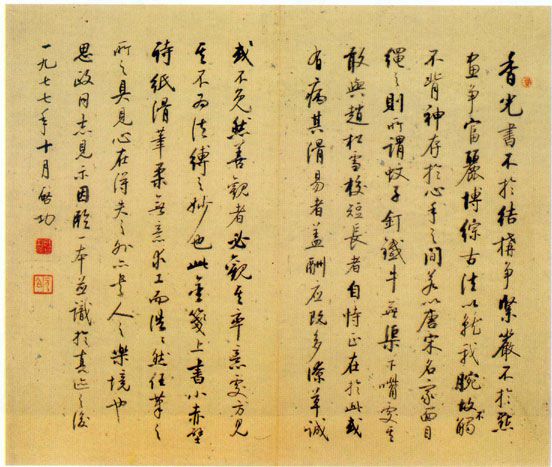 香光書不於結構爭緊嚴不於點
畫爭富麗博綜古法以就我腕故不觸
不背神存於心手之間若以唐宋名家面目
繩之則所謂蚊子釘鐵牛無渠下嘴處矣
敢與趙松雪校短長者自恃正在於此或
有病其滑易者蓋酬應既多潦草誠
或不免然善觀者必觀其率意處方見
其不為法縛之妙也此金箋上書小赤壁
詩紙滑筆柔無意求工而浩〻然任筆之
所之具見心在得失之外亦人之樂境也
思政同志見示因臨一本並識於真跡之後
一九七七年十月啟功